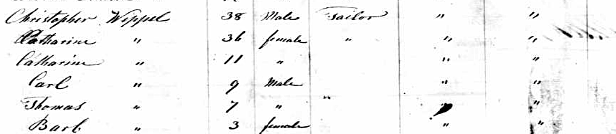 Christopher Wippel 38 Male Tailor " "
Catharine " 36 female " " "
Catharine " 11 " " "
Carl " 9 Male " "
Thomas " 7 " " " "
Barb " 3 female " "